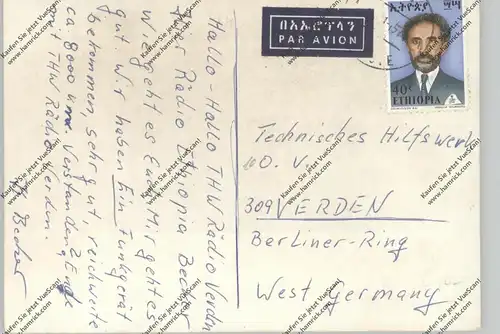 Hallo-Hallo THW Radio Verden
hier Radio Ethiopia Becher
Wie geht es Euch. Mir geht es
gut. Wir haben Ein Funkgerät
bekommen, sehr gut, reichweite
ca 8000 km. Verstanden? Ende
THW Radio Verden.
Becher
በአውሮፕላን
PAR AVION
ኢትዮጵያ
40c
ETHIOPIA
Technisches Hilfswerk
O.V.
309 VERDEN
Berliner-Ring
West Germany
Kaufen Sie jetzt VueScan!
www.hamrick.com